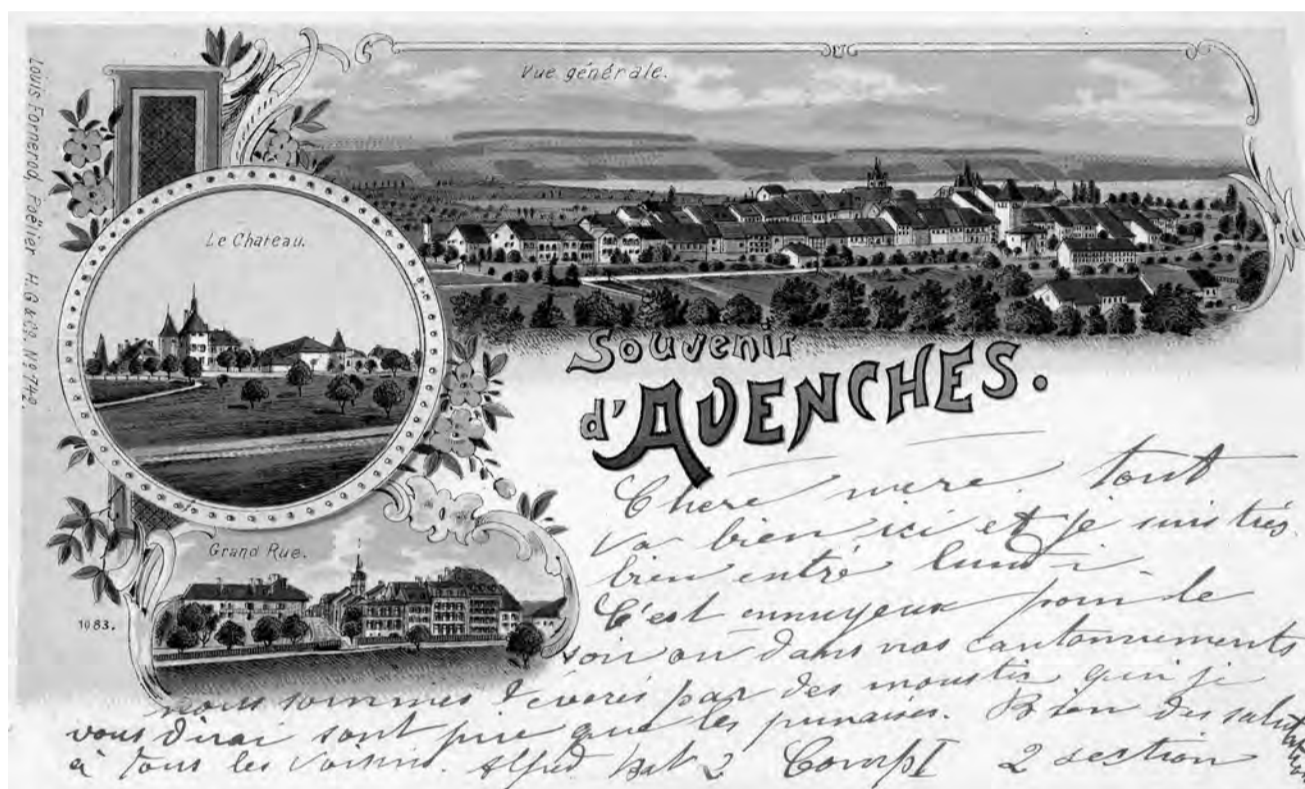 Louis Fornerod, Poëlier H. G. & Co. No 742.
Vue générale.
Le Chateau.
Grand Rue.
1983.
Souvenir
d'AVENCHES.
Chere mere tout
va bien ici et je suis très
bien entré lundi.
C'est ennuyeux pour le
soir ou dans nos cantonnements
nous sommes déverés par des moustis qui je
vous dirai sont pire que les punaises. Bien des salut
à tous les voisins. Alfred Bat 2 Comp I 2 section